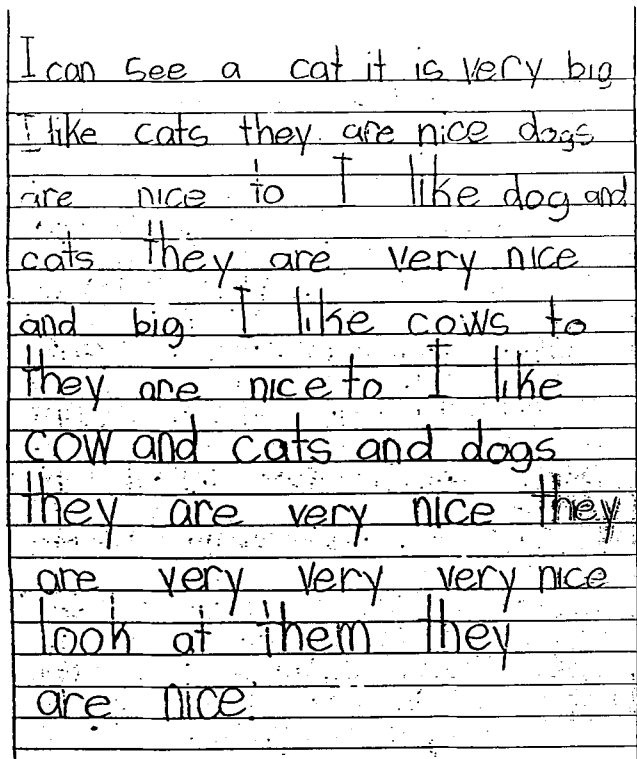 I can see a cat it is very big
I like cats they are nice dogs
are nice to I like dog and
cats they are very nice
and big I like cows to
they are nice to I like
cow and cats and dogs
they are very nice they
are very very very nice
look at them they
are nice.